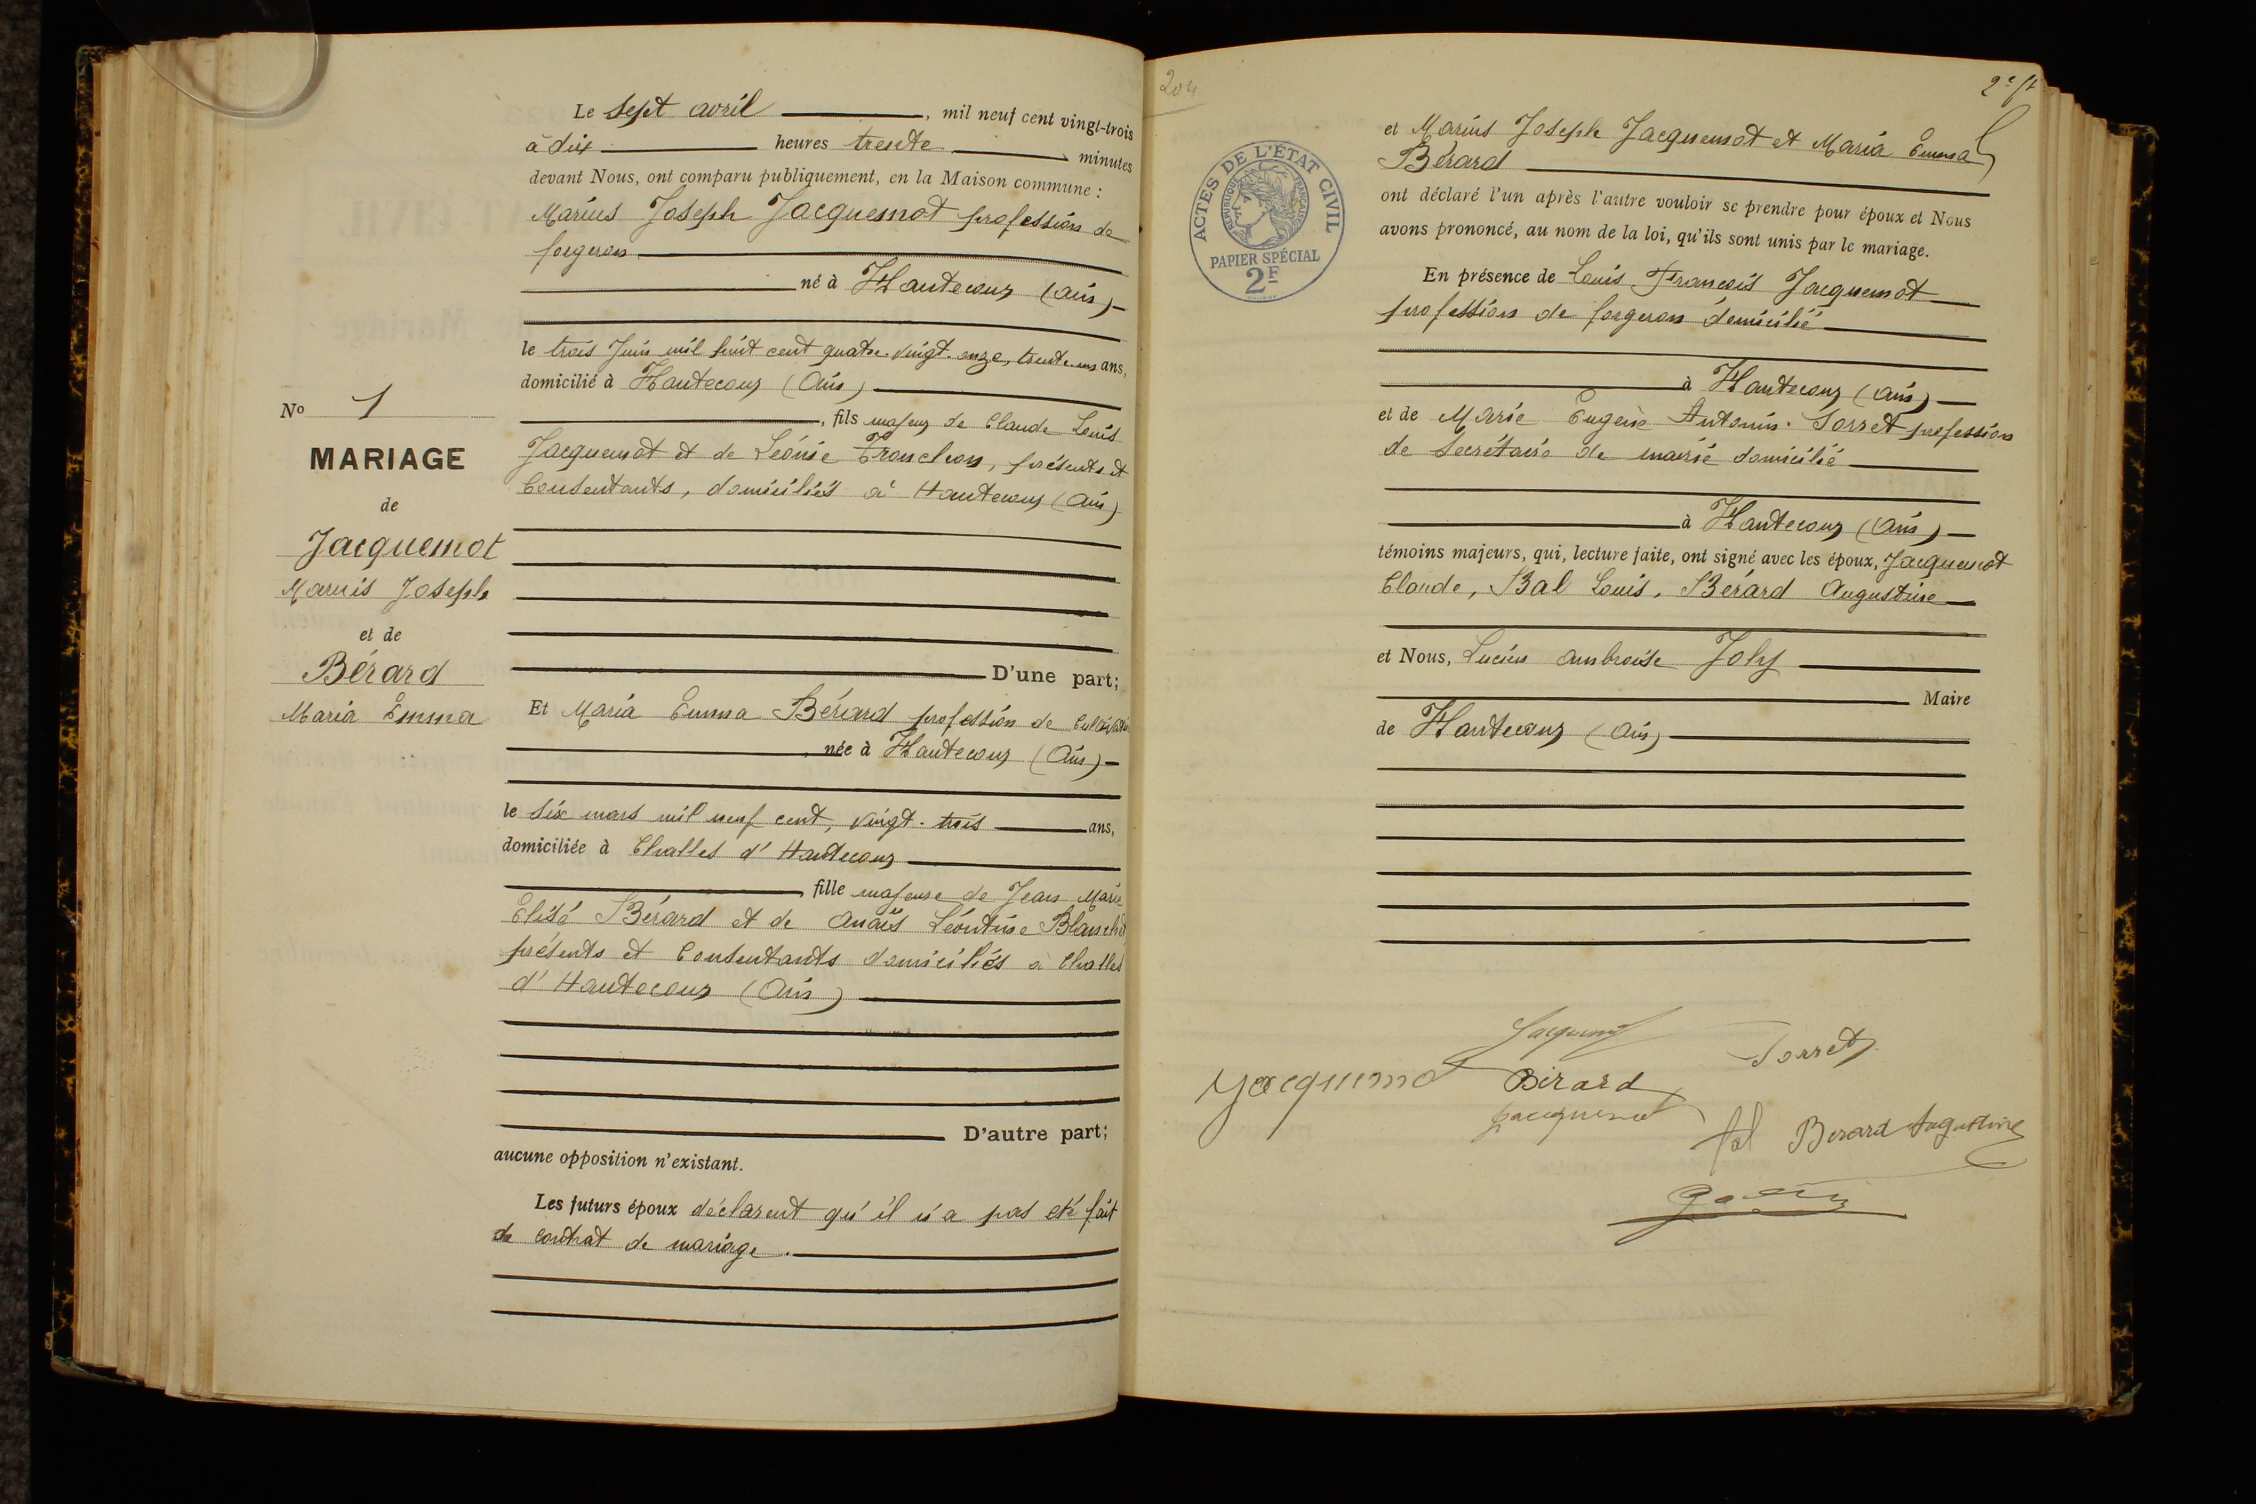 Le sept avril, mil neuf cent vingt-trois
à dix heures trente minutes
devant Nous, ont comparu publiquement, en la Maison commune :
Marius Joseph Jacquemot profession de
forgeron
né à Hautecour (Ain)
le trois Juin mil huit cent quatre-vingt-onze, trente-un ans,
domicilié à Hautecour (Ain)
, fils majeur de Claude Louis
Jacquemot et de Léonie Tronchon, présents et
Consentants, domiciliés à Hautecour (Ain)
No 1
MARIAGE
de
Jacquemot
Maruis Joseph
et de
Bérard
Maria Emma
D'une part;
Et Maria Emma Bérard profession de
née à Hautecour (Ain)
le six mars mil neuf cent, vingt-trois ans,
domiciliée à Challes d'Hautecour
, fille majeure de Jean Marie
Elisé Bérard et de Anaïs Léontine
présents et Consentants domiciliés à Challes
d'Hautecour (Ain)
D'autre part;
aucune opposition n'existant.
Les futurs époux déclarent qu'il n'a pas été fait
de contrat de mariage.
204
et Marius Joseph Jacquemot et Maria Emma
Bérard
ACTES DE L'ÉTAT CIVIL
RÉPUBLIQUE FRANÇAISE
PAPIER SPÉCIAL
2F
ont déclaré l'un après l'autre vouloir se prendre pour époux et Nous
avons prononcé, au nom de la loi, qu'ils sont unis par le mariage.
En présence de Louis François Jacquemot
profession de forgeron domicilié
à Hautecour (Ain)
et de Marie Eugène Antonin Sorret profession
de Secrétaire de mairie domicilié
à Hautecour (Ain)
témoins majeurs, qui, lecture faite, ont signé avec les époux, Jacquemot
Claude, Bal Louis, Bérard Augustine
et Nous, Lucien Ambroise Joly
Maire
de Hautecour (Ain)
Jacquemot
Sorret
Jacquemot
Bérard
Jacquemot
Bal
Berard Augustine